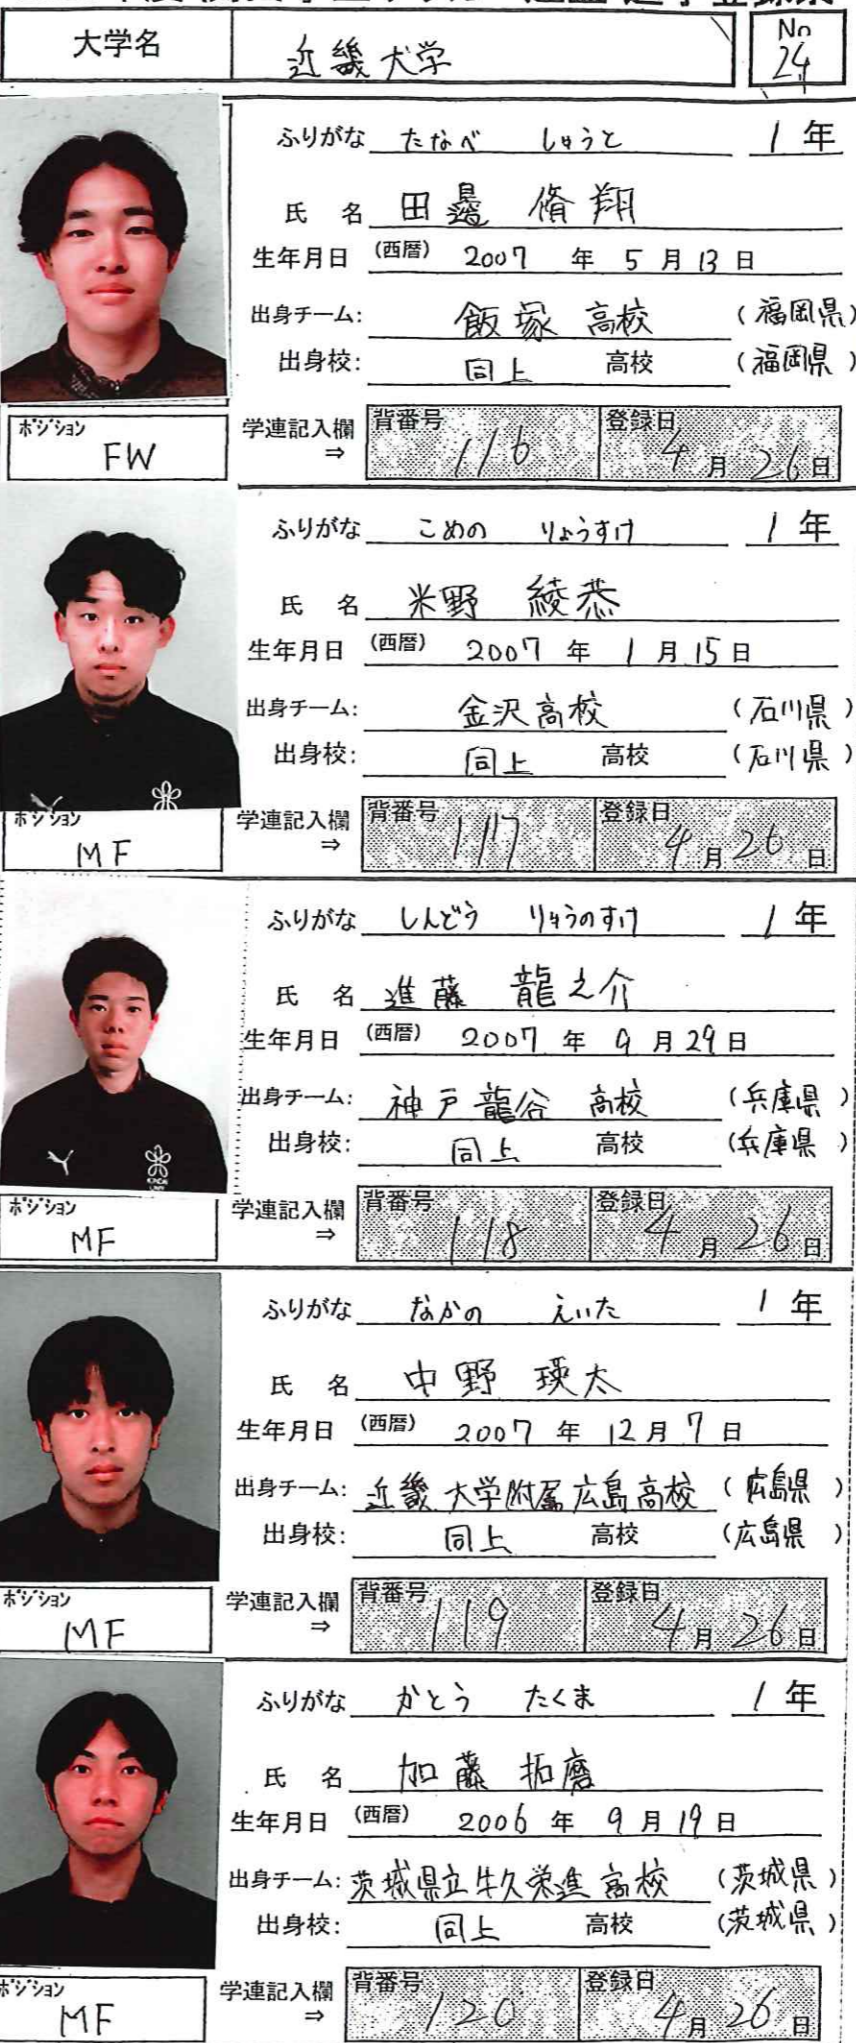 大学名 近畿大学 No 24
ふりがな たなべ しゅうと 1年
氏 名 田邊 脩翔
生年月日 (西暦) 2007 年 5 月 13 日
出身チーム: 飯塚 高校 (福岡県)
出身校: 同上 高校 (福岡県)
ポジション FW 学連記入欄 ⇒ 背番号 116 登録日 4月26日
ふりがな こめの りょうすけ 1年
氏 名 米野 綾恭
生年月日 (西暦) 2007 年 1 月 15 日
出身チーム: 金沢高校 (石川県)
出身校: 同上 高校 (石川県)
ポジション MF 学連記入欄 ⇒ 背番号 117 登録日 4月26日
ふりがな しんどう りゅうのすけ 1年
氏 名 進藤 龍之介
生年月日 (西暦) 2007 年 9 月 29 日
出身チーム: 神戸龍谷 高校 (兵庫県)
出身校: 同上 高校 (兵庫県)
ポジション MF 学連記入欄 ⇒ 背番号 118 登録日 4月26日
ふりがな なかの えいた 1年
氏 名 中野 瑛太
生年月日 (西暦) 2007 年 12 月 7 日
出身チーム: 近畿大学附属広島高校 (広島県)
出身校: 同上 高校 (広島県)
ポジション MF 学連記入欄 ⇒ 背番号 119 登録日 4月26日
ふりがな かとう たくま 1年
氏 名 加藤 拓磨
生年月日 (西暦) 2006 年 9 月 19 日
出身チーム: 茨城県立牛久栄進高校 (茨城県)
出身校: 同上 高校 (茨城県)
ポジション MF 学連記入欄 ⇒ 背番号 120 登録日 4月26日